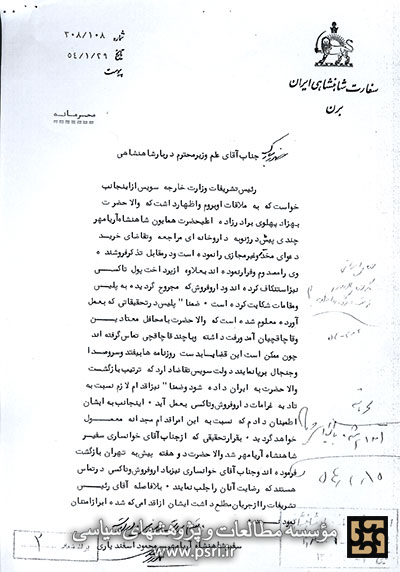 سفارت شاهنشاهی ایران
برن
شماره ۳۰۸/۱۰۸
تاریخ ۵۴/۱/۲۹
پیوست
محرمانه
جناب آقای علم وزیر محترم دربار شاهنشاهی
رئیس تشریفات وزارت خارجه سویس از اینجانب
خواست که به ملاقات او بروم و اظهار داشت که والاحضرت
بهزاد پهلوی برادرزاده اعلیحضرت همایون شاهنشاه آریامهر
چندی پیش در ژنو به داروخانه ای مراجعه و تقاضای خرید
دوای مخدر و غیرمجازی را نموده است و در مقابل تذکر فروشنده
وی را مصدوم و فرار نموده اند بعلاوه از پرداخت پول تاکسی
نیز استنکاف کرده اند و داروفروش که مجروح گردیده به پلیس
و مقامات شکایت کرده است . ضمنا" پلیس در تحقیقاتی که بعمل
آورده معلوم شده است که والاحضرت با محافل معتادین
و قاچاقچیان آمد و رفت داشته و با چند قاچاقچی تماس گرفته اند
چون ممکن است این قضایا بدست روزنامه ها بیفتد و سر و صدا
و جنجال برپا نمایند دولت سویس تقاضا دارد که ترتیب بازگشت
والاحضرت به ایران داده شود و ضمنا" نیز اقدام لازم نسبت به
تادیه غرامات داروفروش و تاکسی بعمل آید . اینجانب به ایشان
اطمینان دادم که نسبت به این امر اقدام مجدانه معمول
خواهد گردید . بقرار تحقیقی که از جناب آقای خوانساری سفیر
شاهنشاه آریامهر شد والاحضرت دو هفته پیش به تهران بازگشت
فرموده اند و جناب آقای خوانساری نیز با داروفروش و تاکسی در تماس
هستند که رضایت آنان را جلب نمایند . بلافاصله آقای رئیس
تشریفات را از جریان مطلع داشت ایشان از اقدامی که شده ابراز امتنان
سفیر شاهنشاه آریامهر محمود اسفندیاری
۵۴/۲/۱۵
۲
موسسه مطالعات و پژوهشهای سیاسی
www.psri.ir